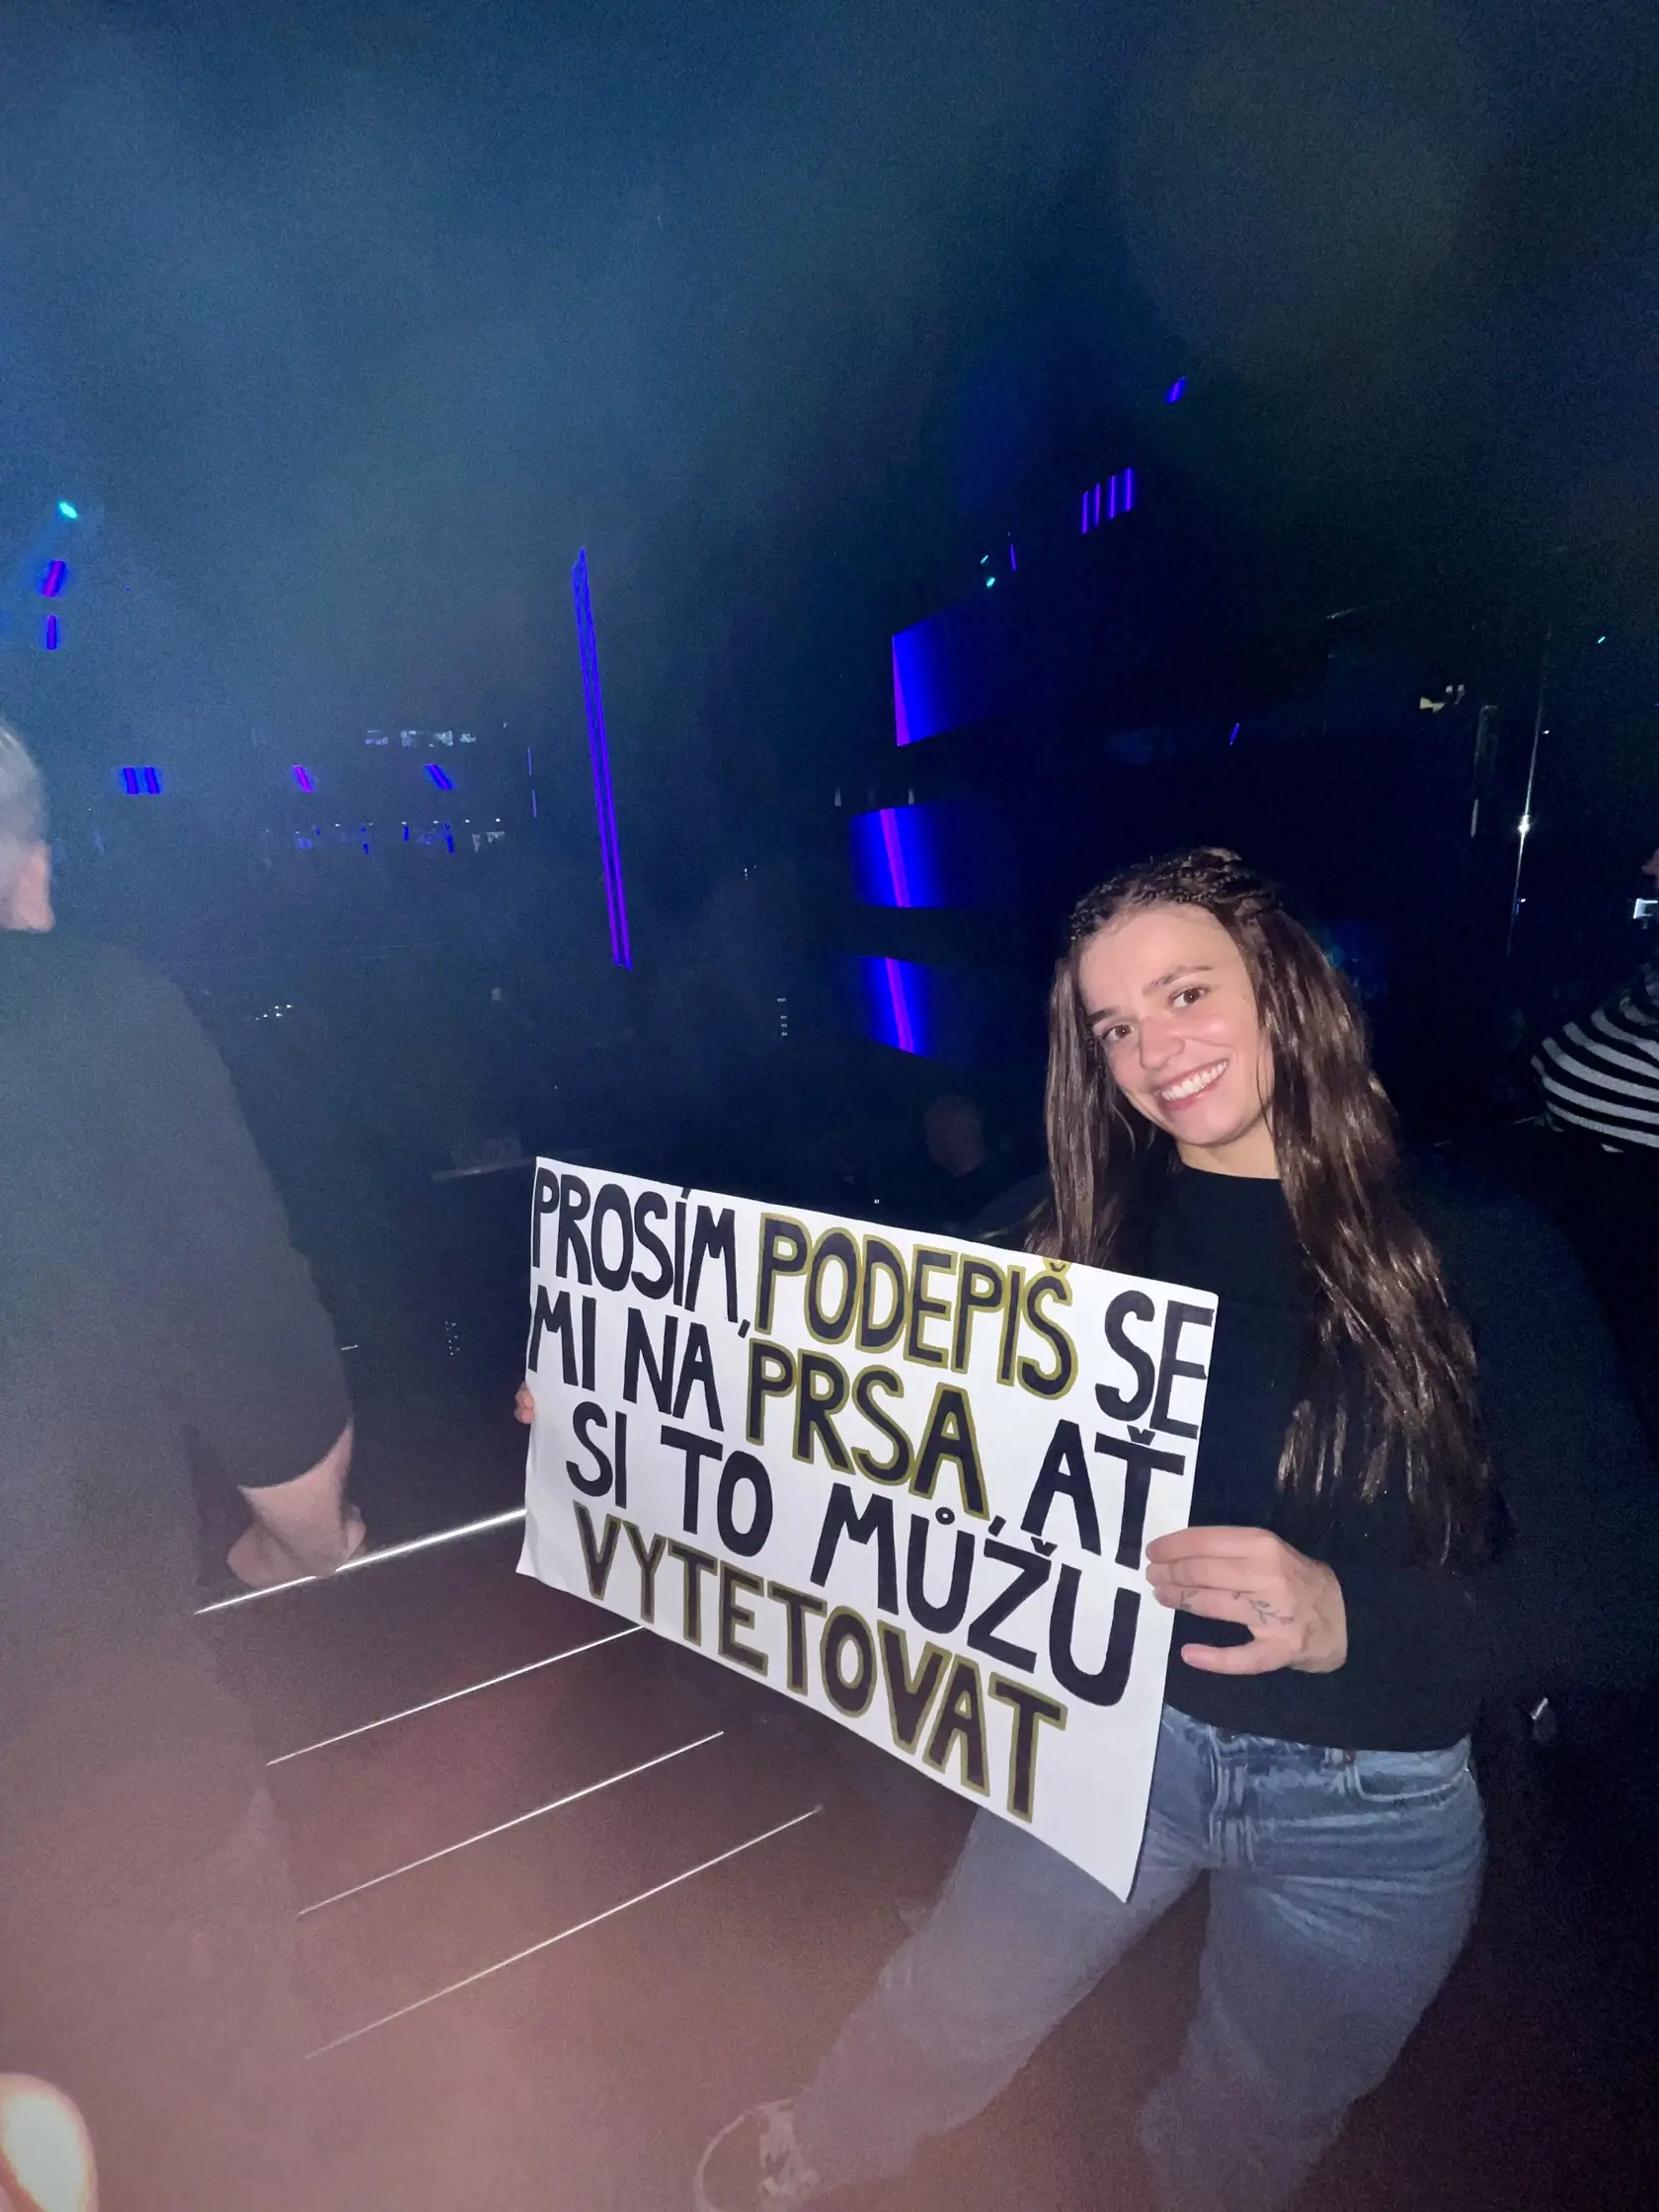 PROSÍM, PODEPIŠ SE
MI NA PRSA, AŤ
SI TO MŮŽU
VYTETOVAT